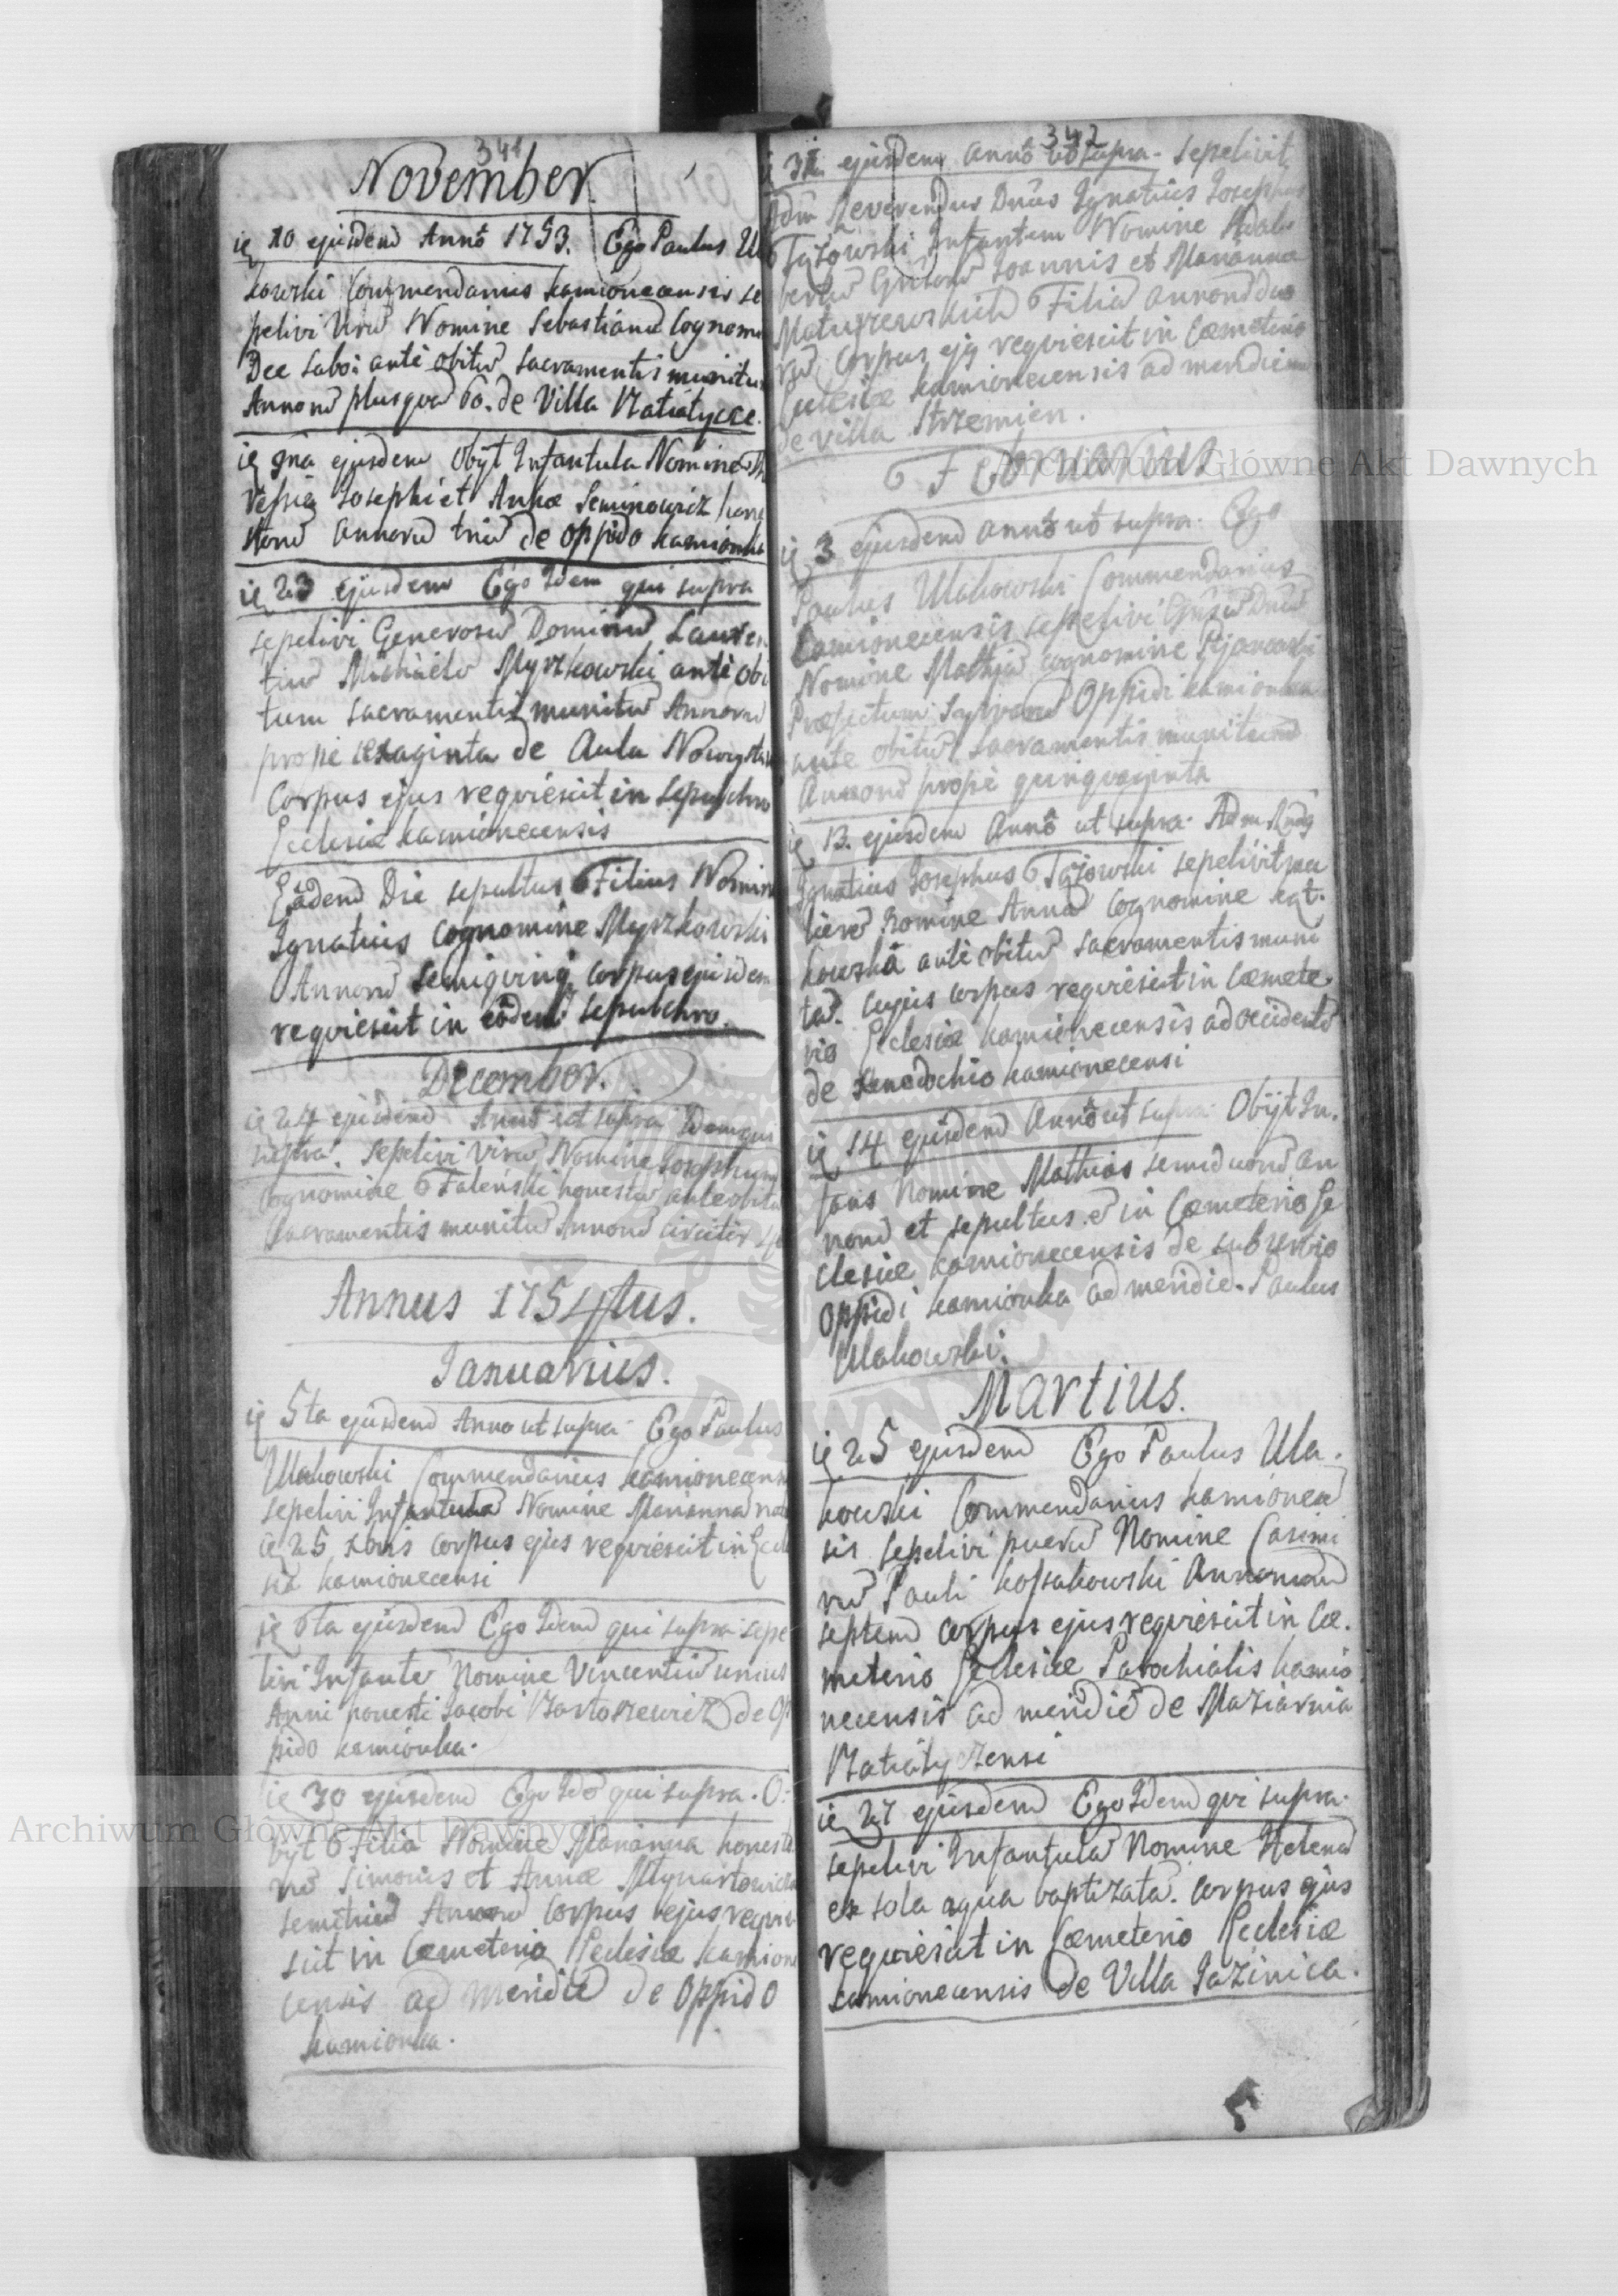 341
November
ię 10 ejusdem Annô 1753. Ego Paulus Ula
kowski Commendarius kamionecensis se
pelivi Virū Nomine Sebastianū Cognomi
ante obitū sacramentis munitu
Annorū plusquā 60. de Villa Batiatycze.
ię gna ejusdem Obijt Infantula Nomine
Josephi et Annæ Seminowicz hone
storū annorū triū de oppido kamionka
ię 23 ejusdem Ego Idem qui supra
sepelivi Generosū Dominū Lauren
tiū Michaelē Myszkowski antè obi
tum sacramentis munitū Annorū
propè sexaginta de Aula Nowystaw
Corpus ejus requiescit in sepulchro
Ecclesiæ kamionecensis
Eâdem Die sepultus Filius Nomine
Ignatius Cognomine Myszkowski
Annorū semiquinq; corpus ejusdem
requiescit in eôdem sepulchro.
December.
ię 24 ejusdem Annô ut supra Idem qui
supra. sepelivi Virū Nomine Josephum
Cognomine Faleński honestū ante obitū
sacramentis munitū Annorū circiter
Annus 1754tus.
Januarius.
ię 5ta ejusdem Anno ut supra Ego Paulus
Ulakowski Commendarius kamionecens
sepelivi Infantulā Nomine Marianna
25 corpus ejus requiescit in Eccle
siâ kamionecensi
ię 6ta ejusdem Ego Idem qui supra sepe
livi Infantē Nomine Vincentiū unius
Anni honesti Jacobi Bartoszewicz de Op
pido kamionka.
ię 30 ejusdem Ego Idē qui supra. O:
bijt Filia Nomine Marianna honesto
rū Simonis et Annæ Młynartowicz
semitriū Annorū corpus ejus requie
scit in Cæmeterio Ecclesiæ kamione
censis ad meridiē de Oppido
kamionka.
342
ię 31 ejusdem annô ut supra. sepelivit
Adm Reverendus Dnūs Ignatius Josephus
Tajowski Infantem Nomine Adal
bertū Joannis et Mariannæ
Matuszewskich Filiū annorū duo
rū, corpus ejq requiescit in Cæmeterio
Ecclesiæ kamionecensis ad meridiem
de villa Strzemien.
Februarius
ię 3 ejusdem annô ut supra. Ego
Paulus Ulakowski Commendarius
kamionecensis sepelivi Dnū
Nomine Mathiā cognomine
Præfectum Sylvarū Oppidi kamionka
ante obitū sacramentis munitum
Annorū propè quinquaginta
ię 13. ejusdem Annô ut supra. Adm Rndq
Ignatius Josephus Tajowski sepelivit mu
lierē Nomine Annā Cognomine Kat.
kowskâ antè obitū sacramentis muni
tā. cujus corpus requiescit in Cæmete.
rio Ecclesiæ kamionecensis ad occidentē
de Xenodochio kamionecensi
ię 14 ejusdem Annô ut supra Obijt In.
fans Nomine Mathias semiduorū an
norū et sepultus ē in Cæmeterio Ec
clesiæ kamionecensis de suburbio
Oppidi kamionka ad meridiē. Paulus
Ulakowski.
Martius.
ię 25 ejusdem Ego Paulus Ula.
kowski Commendarius kamionecē
sis sepelivi puerū Nomine Casimi
rū Pauli kossakowski Annorum
septem corpus ejus requiescit in Cæ.
meterio Ecclesiæ Parochialis kamio
necensis ad meridiē de Maziarnia
Batiatyczensi
ię 27 ejusdem Ego Idem qvi supra.
sepelivi Infantulā Nomine Helenā
ex sola aqua baptizatā. corpus ejus
requiescit in Cæmeterio Ecclesiæ
kamionecensis de Villa Jazinica.
Archiwum Główne Akt Dawnych
Archiwum Główne Akt Dawnych